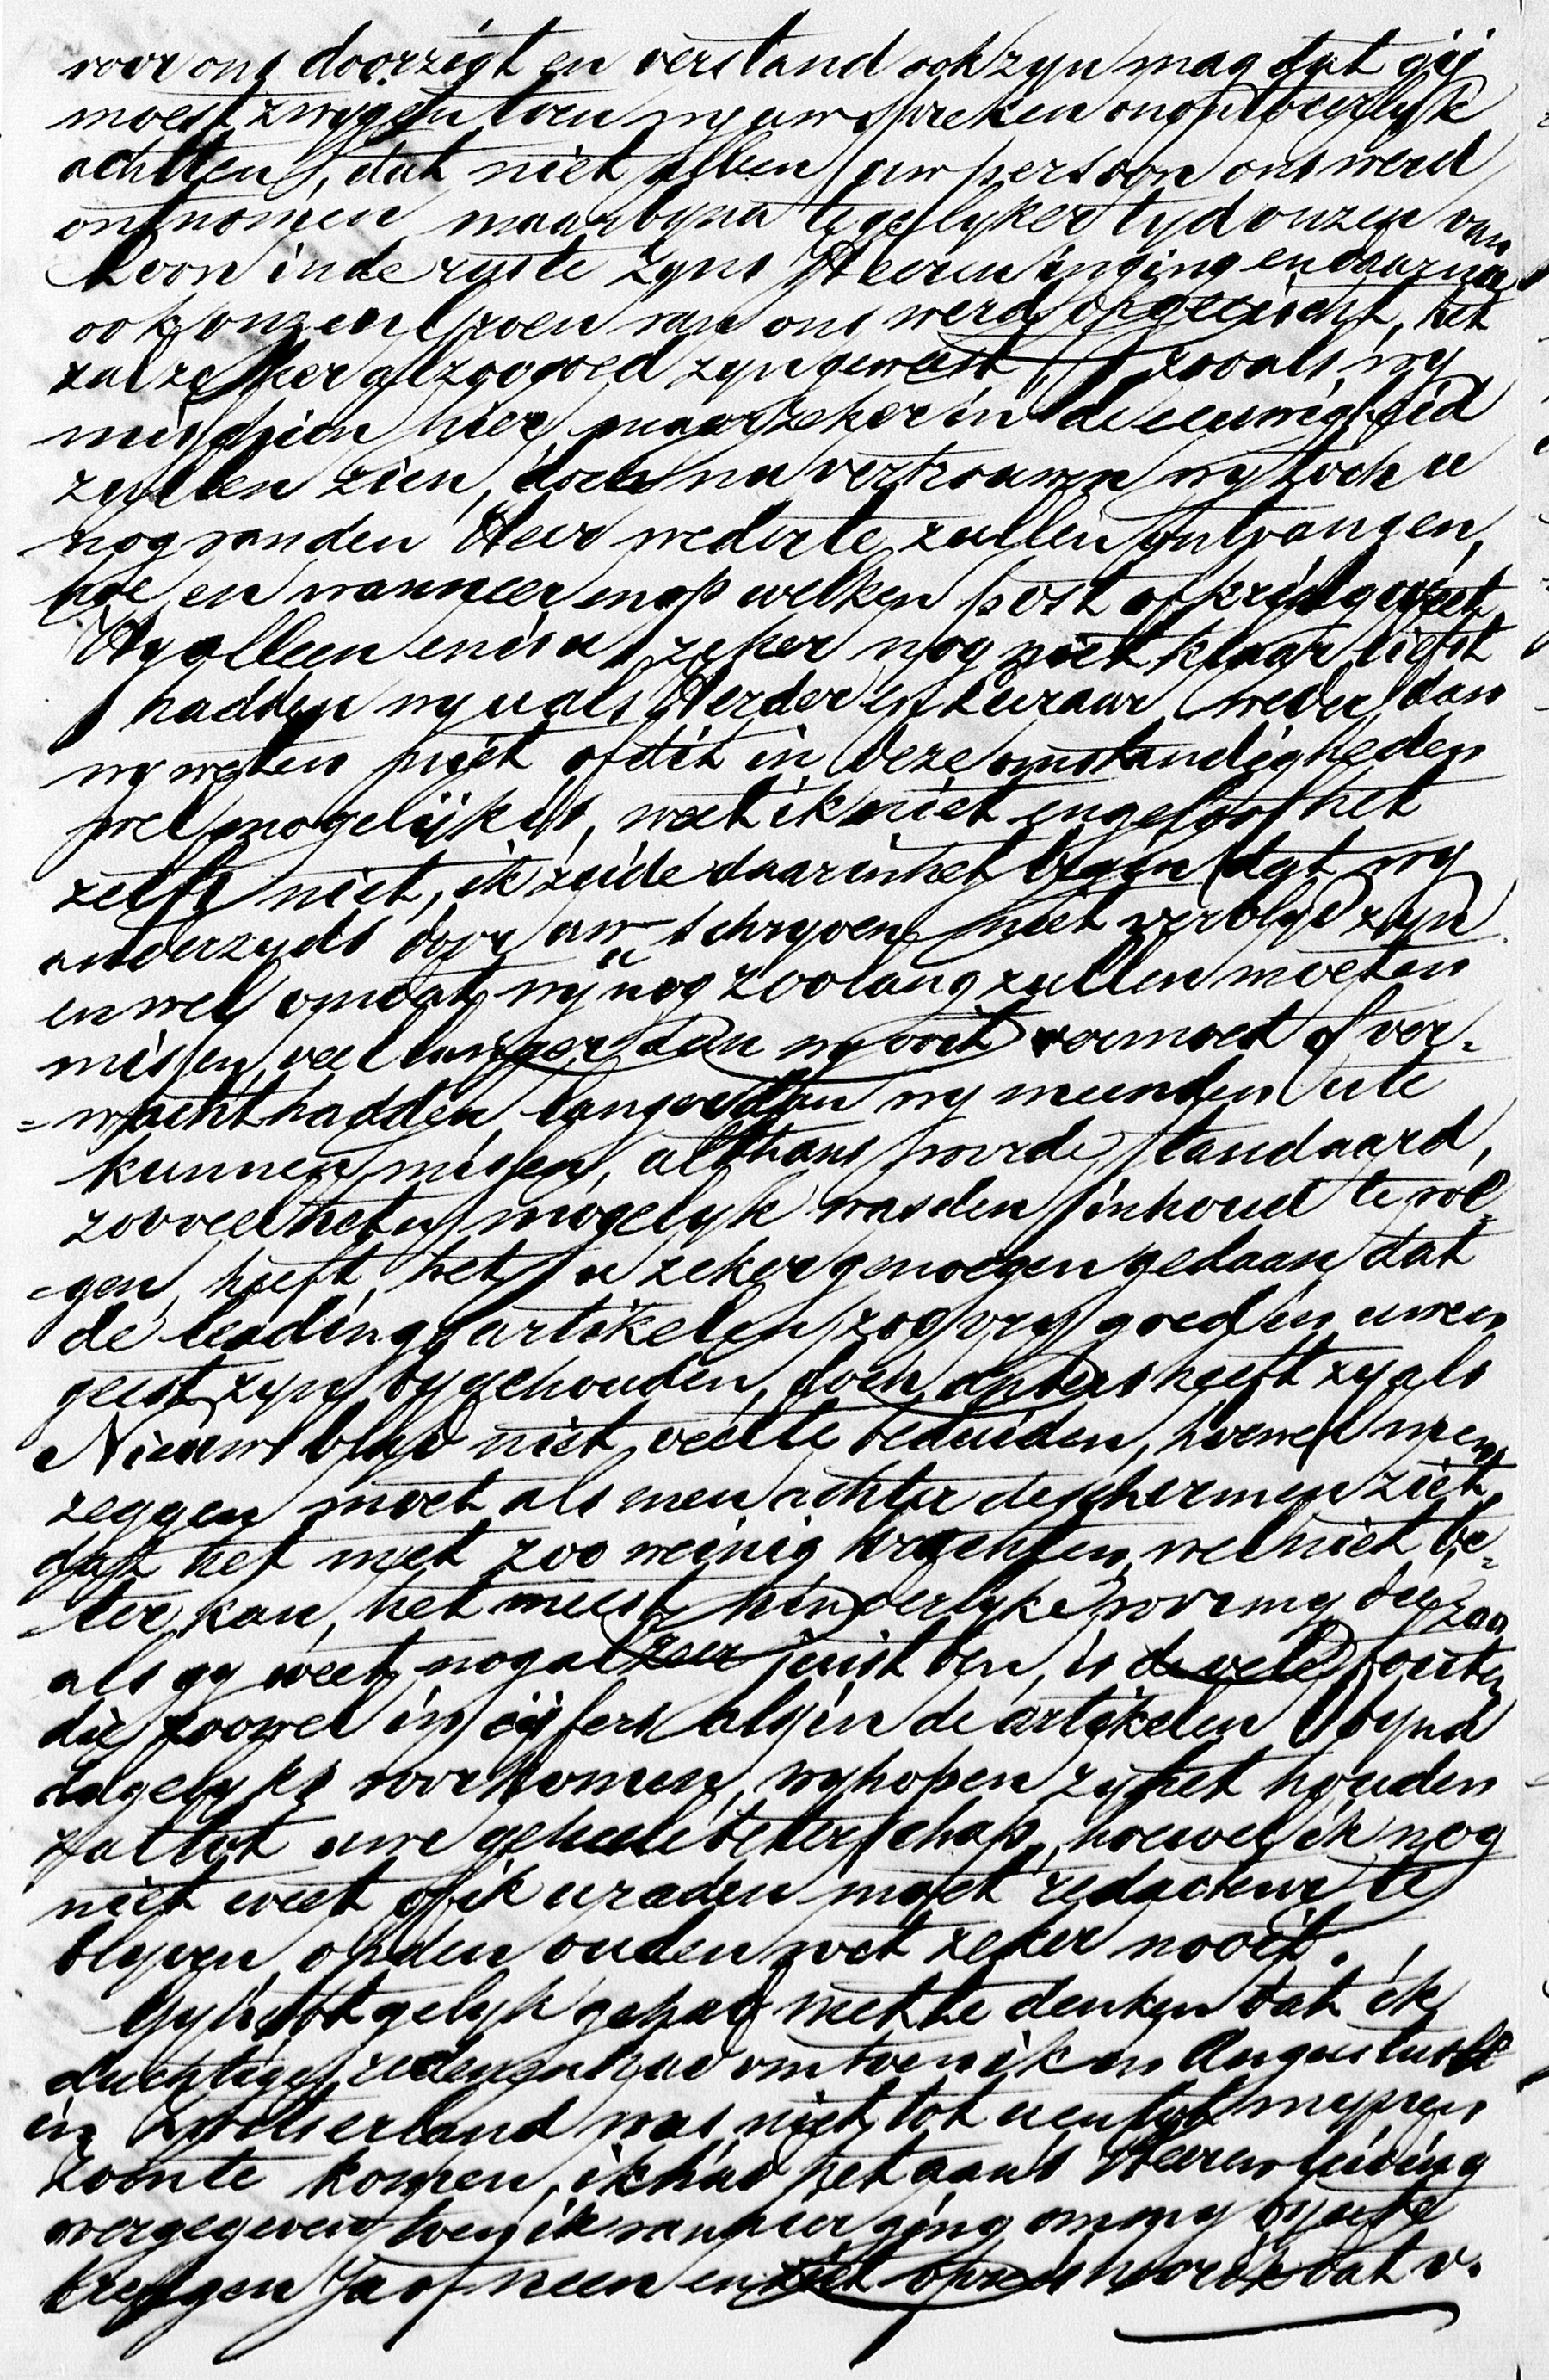 voor ons doorzigt en verstand ook zyn mag dat gij
moest zwygen toen wy uw spreken onontbeerlyk
achtten, dat niet alleen uw persoon ons werd
ontnomen maar byna tegelyker tyd onzen van
Loon in de ruste zyns Heeren inging en daarna
ook onzen van ons werd opgeeischt, het
zal zeker alzoo goed zyn geweest, zooals wy
misschien hier, maar zeker in de eeuwigheid
zullen zien, doch nu vertrouwen wy toch u
nog van den Heer weder te zullen ontvangen,
hoe en wanneer en op welken post of kring weet
Hy alleen en is u zeker nog niet klaar liefst
hadden wy u als Herder en Leraar weder dan
wy weten niet of dit in deze omstandigheden
wel mogelijk is, weet ik niet en geloof het
zelfs niet, ik zeide daar in het begin dat wy
anderzyds door uw schryven niet verblyd zyn
en wel omdat wy u nog zoo lang zullen moeten
missen, veel langer dan wy ooit vermoed of ver-
=wacht hadden, langer dan wy meenden u te
kunnen missen, althans voor de standaard,
zooveel het u mogelyk was den inhoud te vol=
=gen, heeft het u zeker genoegen gedaan dat
de leading artikelen zoo vry goed in uwen
geest zyn bygehouden, doch anders heeft zy als
Nieuwsblad niet veel te beduiden, hoewel men
zeggen moet als men achter de schermen ziet
dat het met zoo weinig krachten wel niet be=
=ter kan, het meest hinderlyke voor my die zoo
als gy weet nogal zeer juist ben, is de vele fouten
die zoowel in cijfers als in de artikelen byna
dagelyks voorkomen, wy hopen zy het houden
zal tot uwe geheele beterschap, hoewel ik nog
niet weet of ik u raden moet redacteur te
blyven, op den ouden voet zeker nooit.
Gy hebt gelyk gehad met te denken dat ik
duchtige redenen had om toen ik in Augustus
in Zwitserland was niet tot u en tot mynen
zoon te komen, ik had het aan's Heeren leiding
overgegeven toen ik van hier ging om my by u te
brengen Ja of neen en ziet op reis hoorde ik dat v.